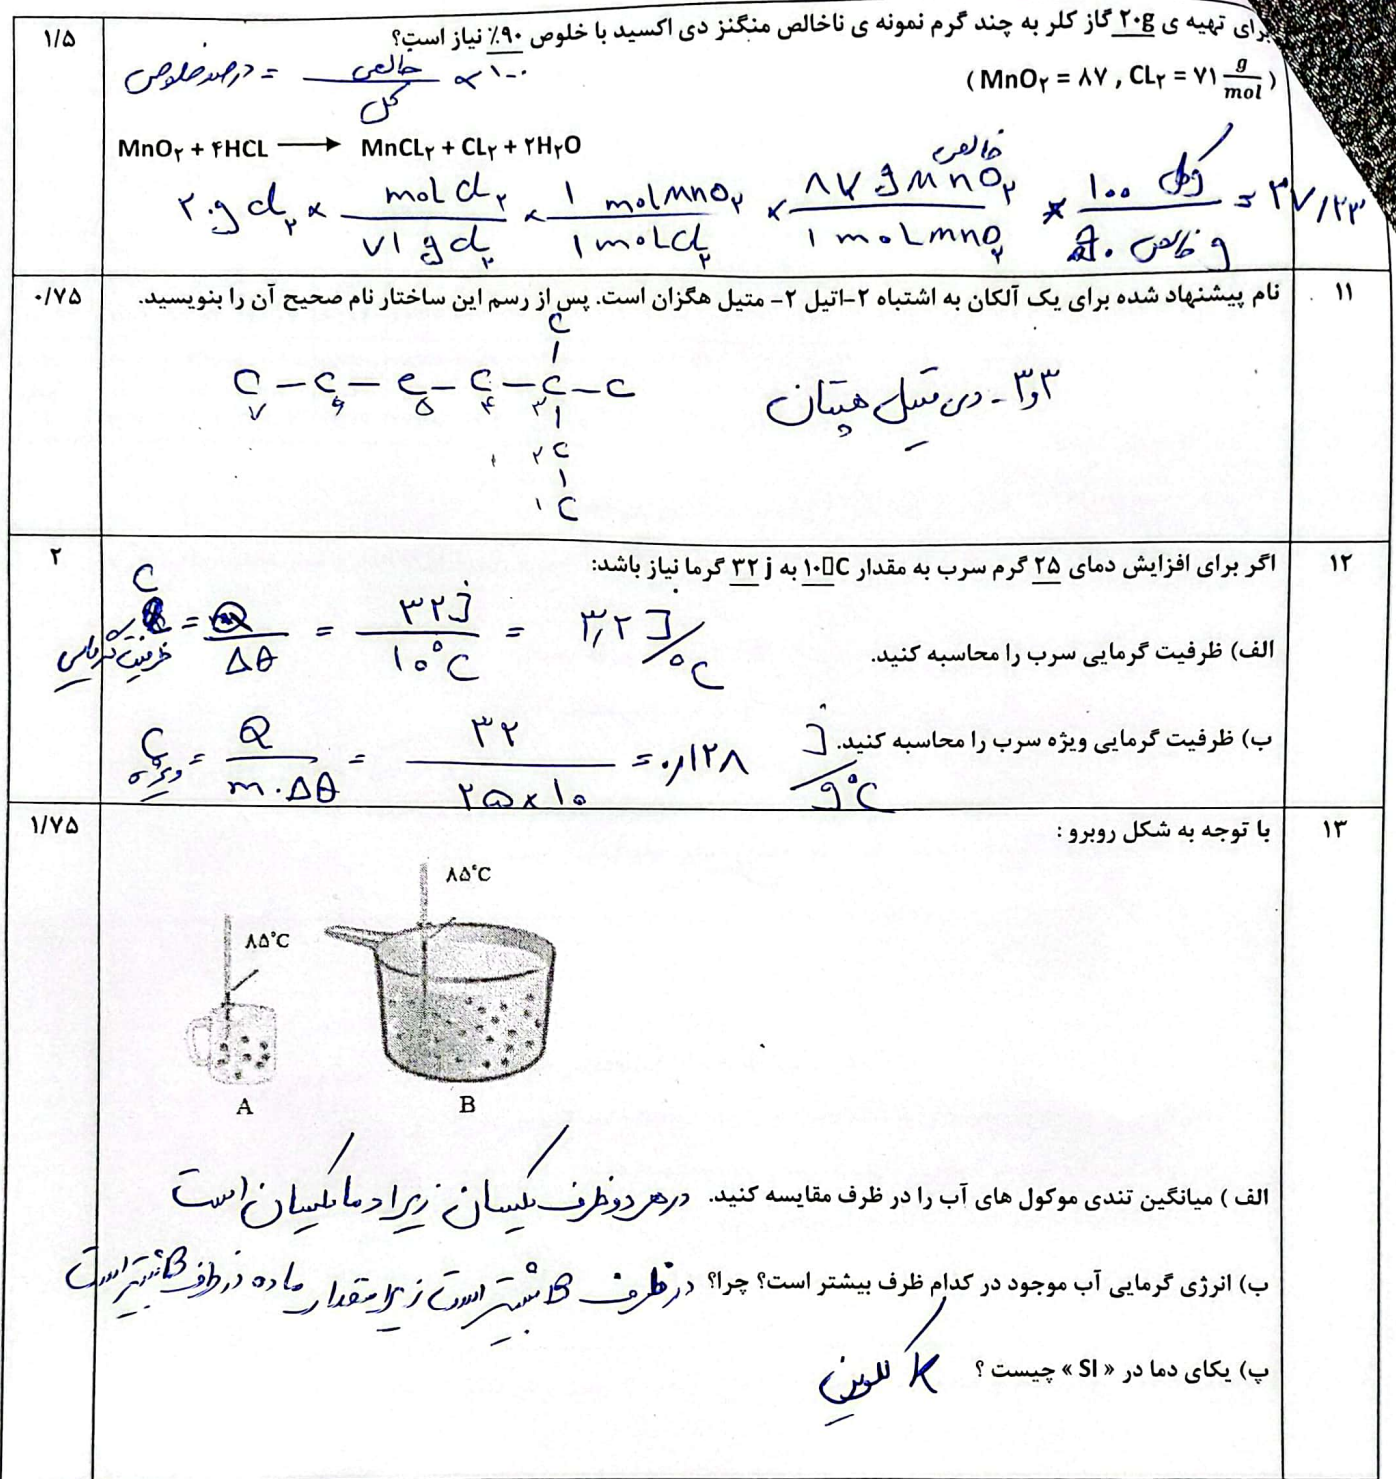 برای تهیه ی ۲۰g گاز کلر به چند گرم نمونه ی ناخالص منگنز دی اکسید با خلوص ۹۰٪ نیاز است؟
۱/۵
(MnO۲ = ۸۷ , CL۲ = ۷۱ g/mol)
درصد خلوص = خالص / کل × ۱۰۰
MnO۲ + ۴HCL ⟶ MnCL۲ + CL۲ + ۲H۲O
۲۰g cl۲ × mol cl۲ / ۷۱ g cl۲ × 1 mol MnO۲ / 1 mol cl۲ × ۸۷ g MnO۲ خالص / 1 mol MnO۲ × ۱۰۰ g کل / ۹۰ g خالص = ۲۷/۲۳
۱۱
نام پیشنهاد شده برای یک آلکان به اشتباه ۲-اتیل ۲- متیل هگزان است. پس از رسم این ساختار نام صحیح آن را بنویسید.
۰/۷۵
C
C – C – C – C – C – C
۷ ۶ ۵ ۴ ۳
۲ C
۱ C
۳و۳ - دی متیل هپتان
۱۲
اگر برای افزایش دمای ۲۵ گرم سرب به مقدار ۱۰▯C به ۳۲ j گرما نیاز باشد:
۲
الف) ظرفیت گرمایی سرب را محاسبه کنید.
C ظرفیت گرمایی = Q / Δθ = ۳۲J / ۱۰°C = ۳,۲ J/°C
ب) ظرفیت گرمایی ویژه سرب را محاسبه کنید.
C ویژه = Q / m.Δθ = ۳۲ / ۲۵×۱۰ = ۰,۱۲۸ J/g°C
۱۳
با توجه به شکل روبرو :
۱/۷۵
۸۵°C
۸۵°C
A
B
الف ) میانگین تندی موکول های آب را در ظرف مقایسه کنید. در هر دو ظرف یکسان زیرا دما یکسان است
ب) انرژی گرمایی آب موجود در کدام ظرف بیشتر است؟ چرا؟ در ظرف B بیشتر است زیرا مقدار ماده در ظرف B بیشتر است
پ) یکای دما در « SI » چیست ؟ K کلوین